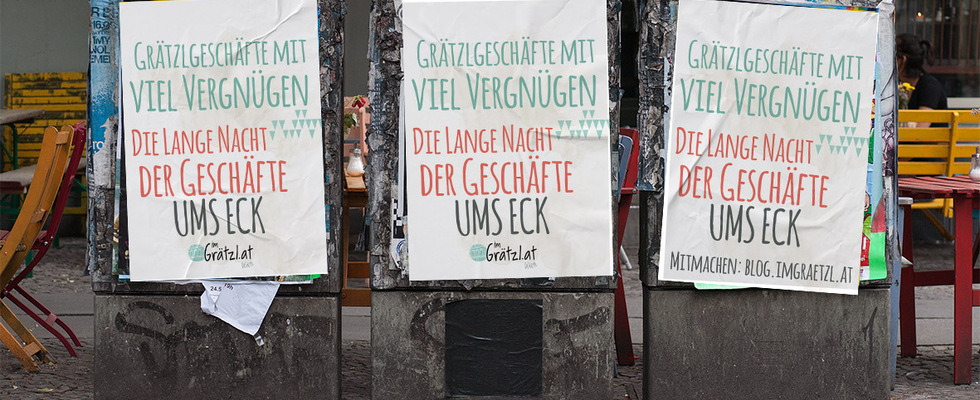 GRÄTZLGESCHÄFTE MIT
VIEL VERGNÜGEN
DIE LANGE NACHT
DER GESCHÄFTE
UMS ECK
im
Grätzl.at
24.5
GRÄTZLGESCHÄFTE MIT
VIEL VERGNÜGEN
DIE LANGE NACHT
DER GESCHÄFTE
UMS ECK
im
Grätzl.at
GRÄTZLGESCHÄFTE MIT
VIEL VERGNÜGEN
DIE LANGE NACHT
DER GESCHÄFTE
UMS ECK
MITMACHEN: BLOG.IMGRAETZL.AT